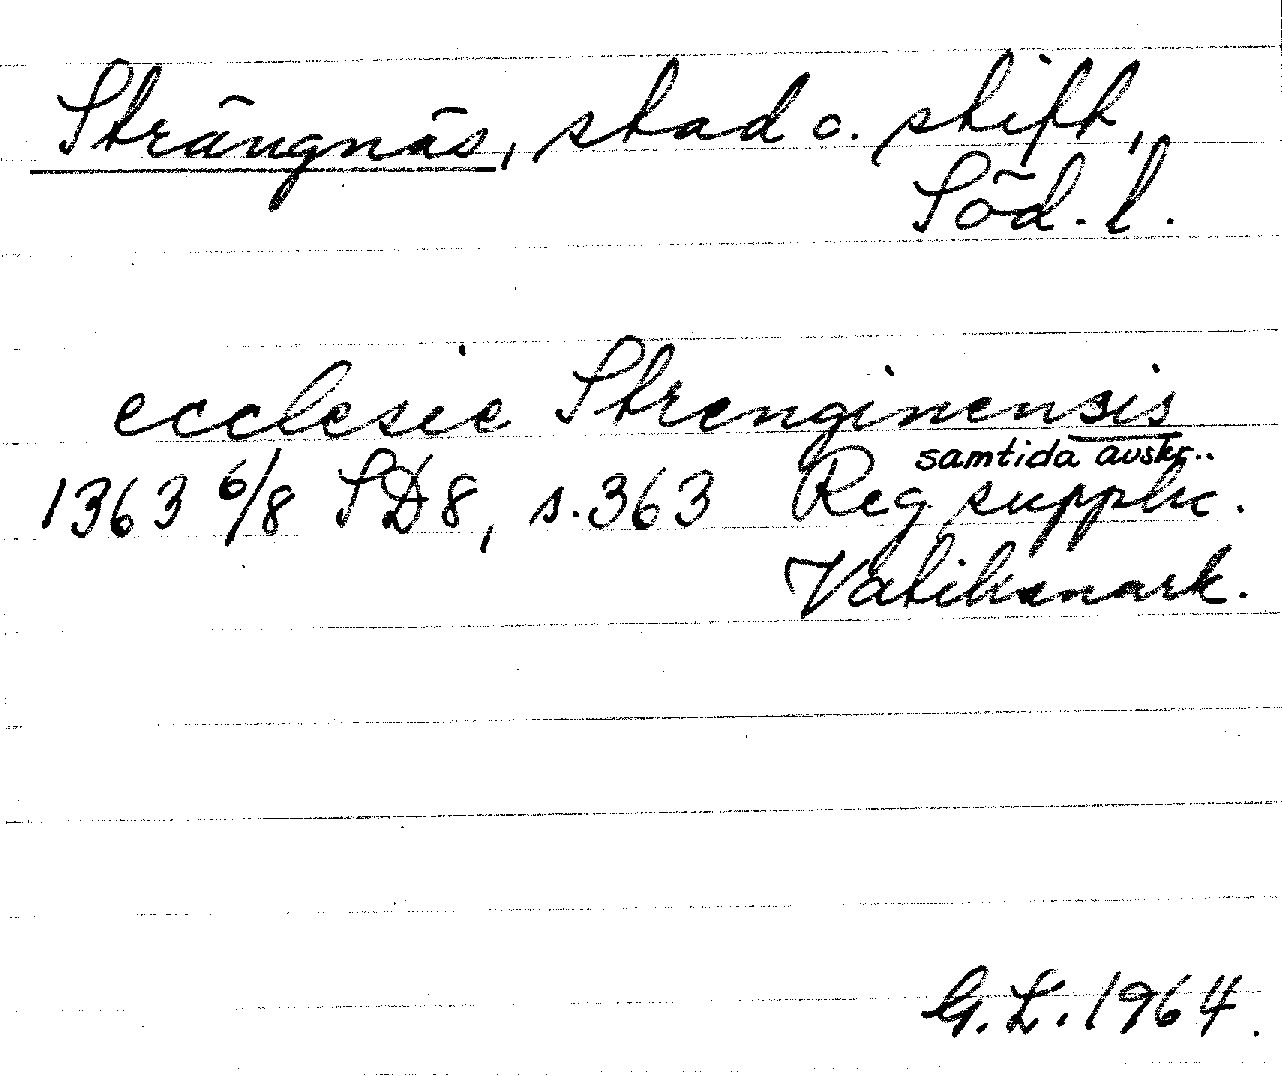 Strängnäs, stad o. stift,
Söd. l.
ecclesie Strenginensis
samtida avskr..
1363 6/8 SD 8, s. 363 Reg supplic.
Vatikanark.
G. L. 1964.